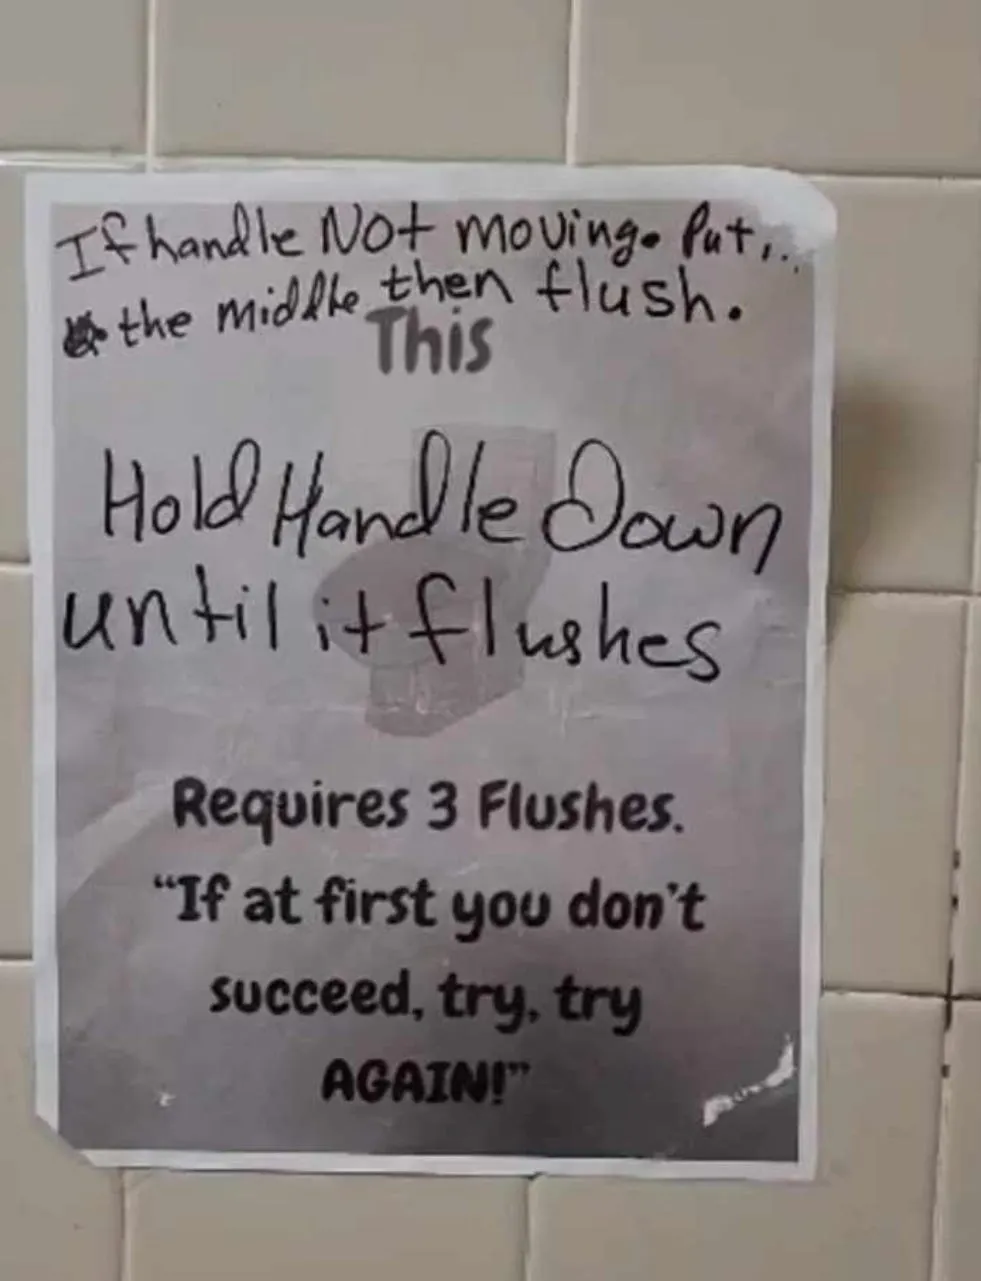 If handle Not moving. Put...
the middle then flush.
This
Hold Handle Down
until it flushes
Requires 3 Flushes.
“If at first you don't
succeed, try, try
AGAIN!”